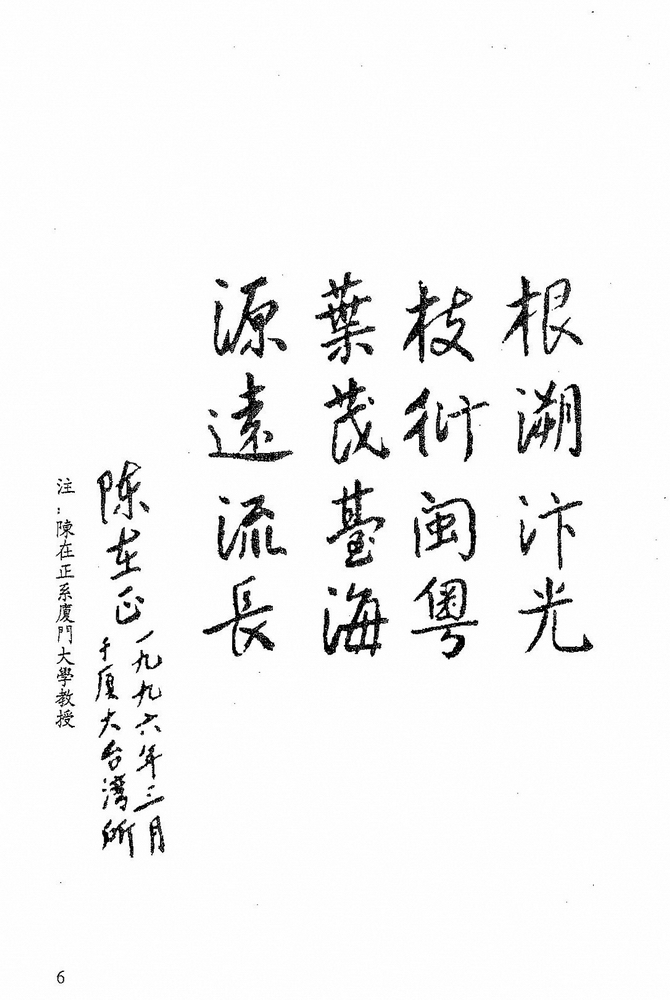 根溯汴光
枝衍閩粵
葉茂臺海
源遠流長
陈在正
一九九六年三月
于厦大台湾所
注：陳在正系廈門大學教授
6